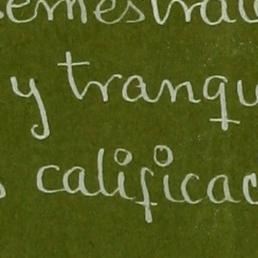 emestral
y tranqu
s calificac